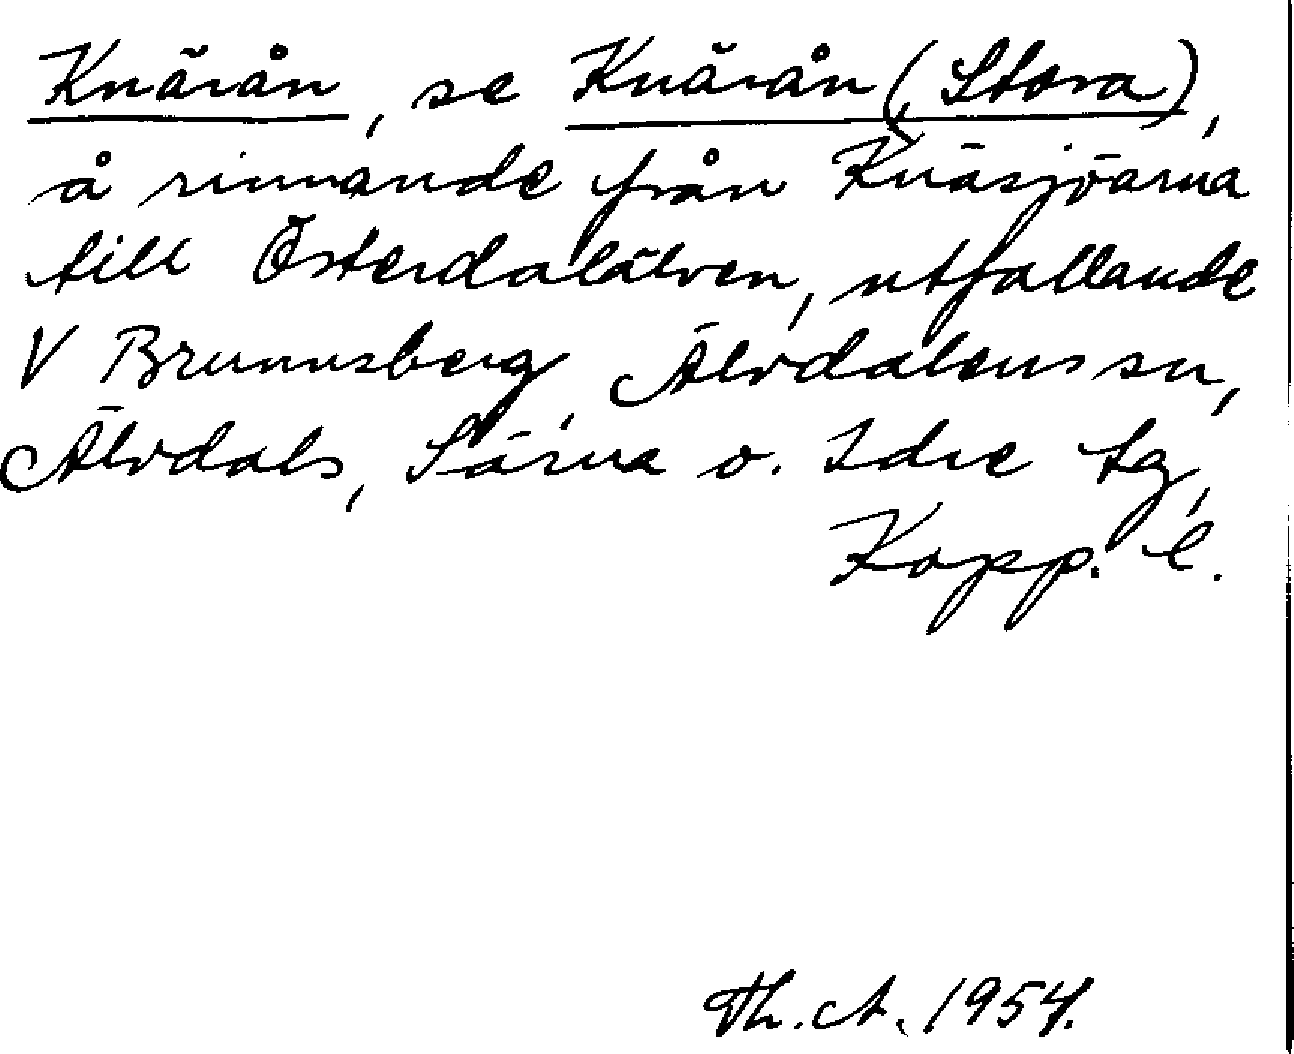 Knärån, se Knärån (Stora),
å rinnande från Knäsjöarna
till Österdalälven, utfallande
V Brunnsberg, Älvdalens sn,
Älvdals, Särna o. Idre tg,
Kopp. l.
Th. A. 1954.